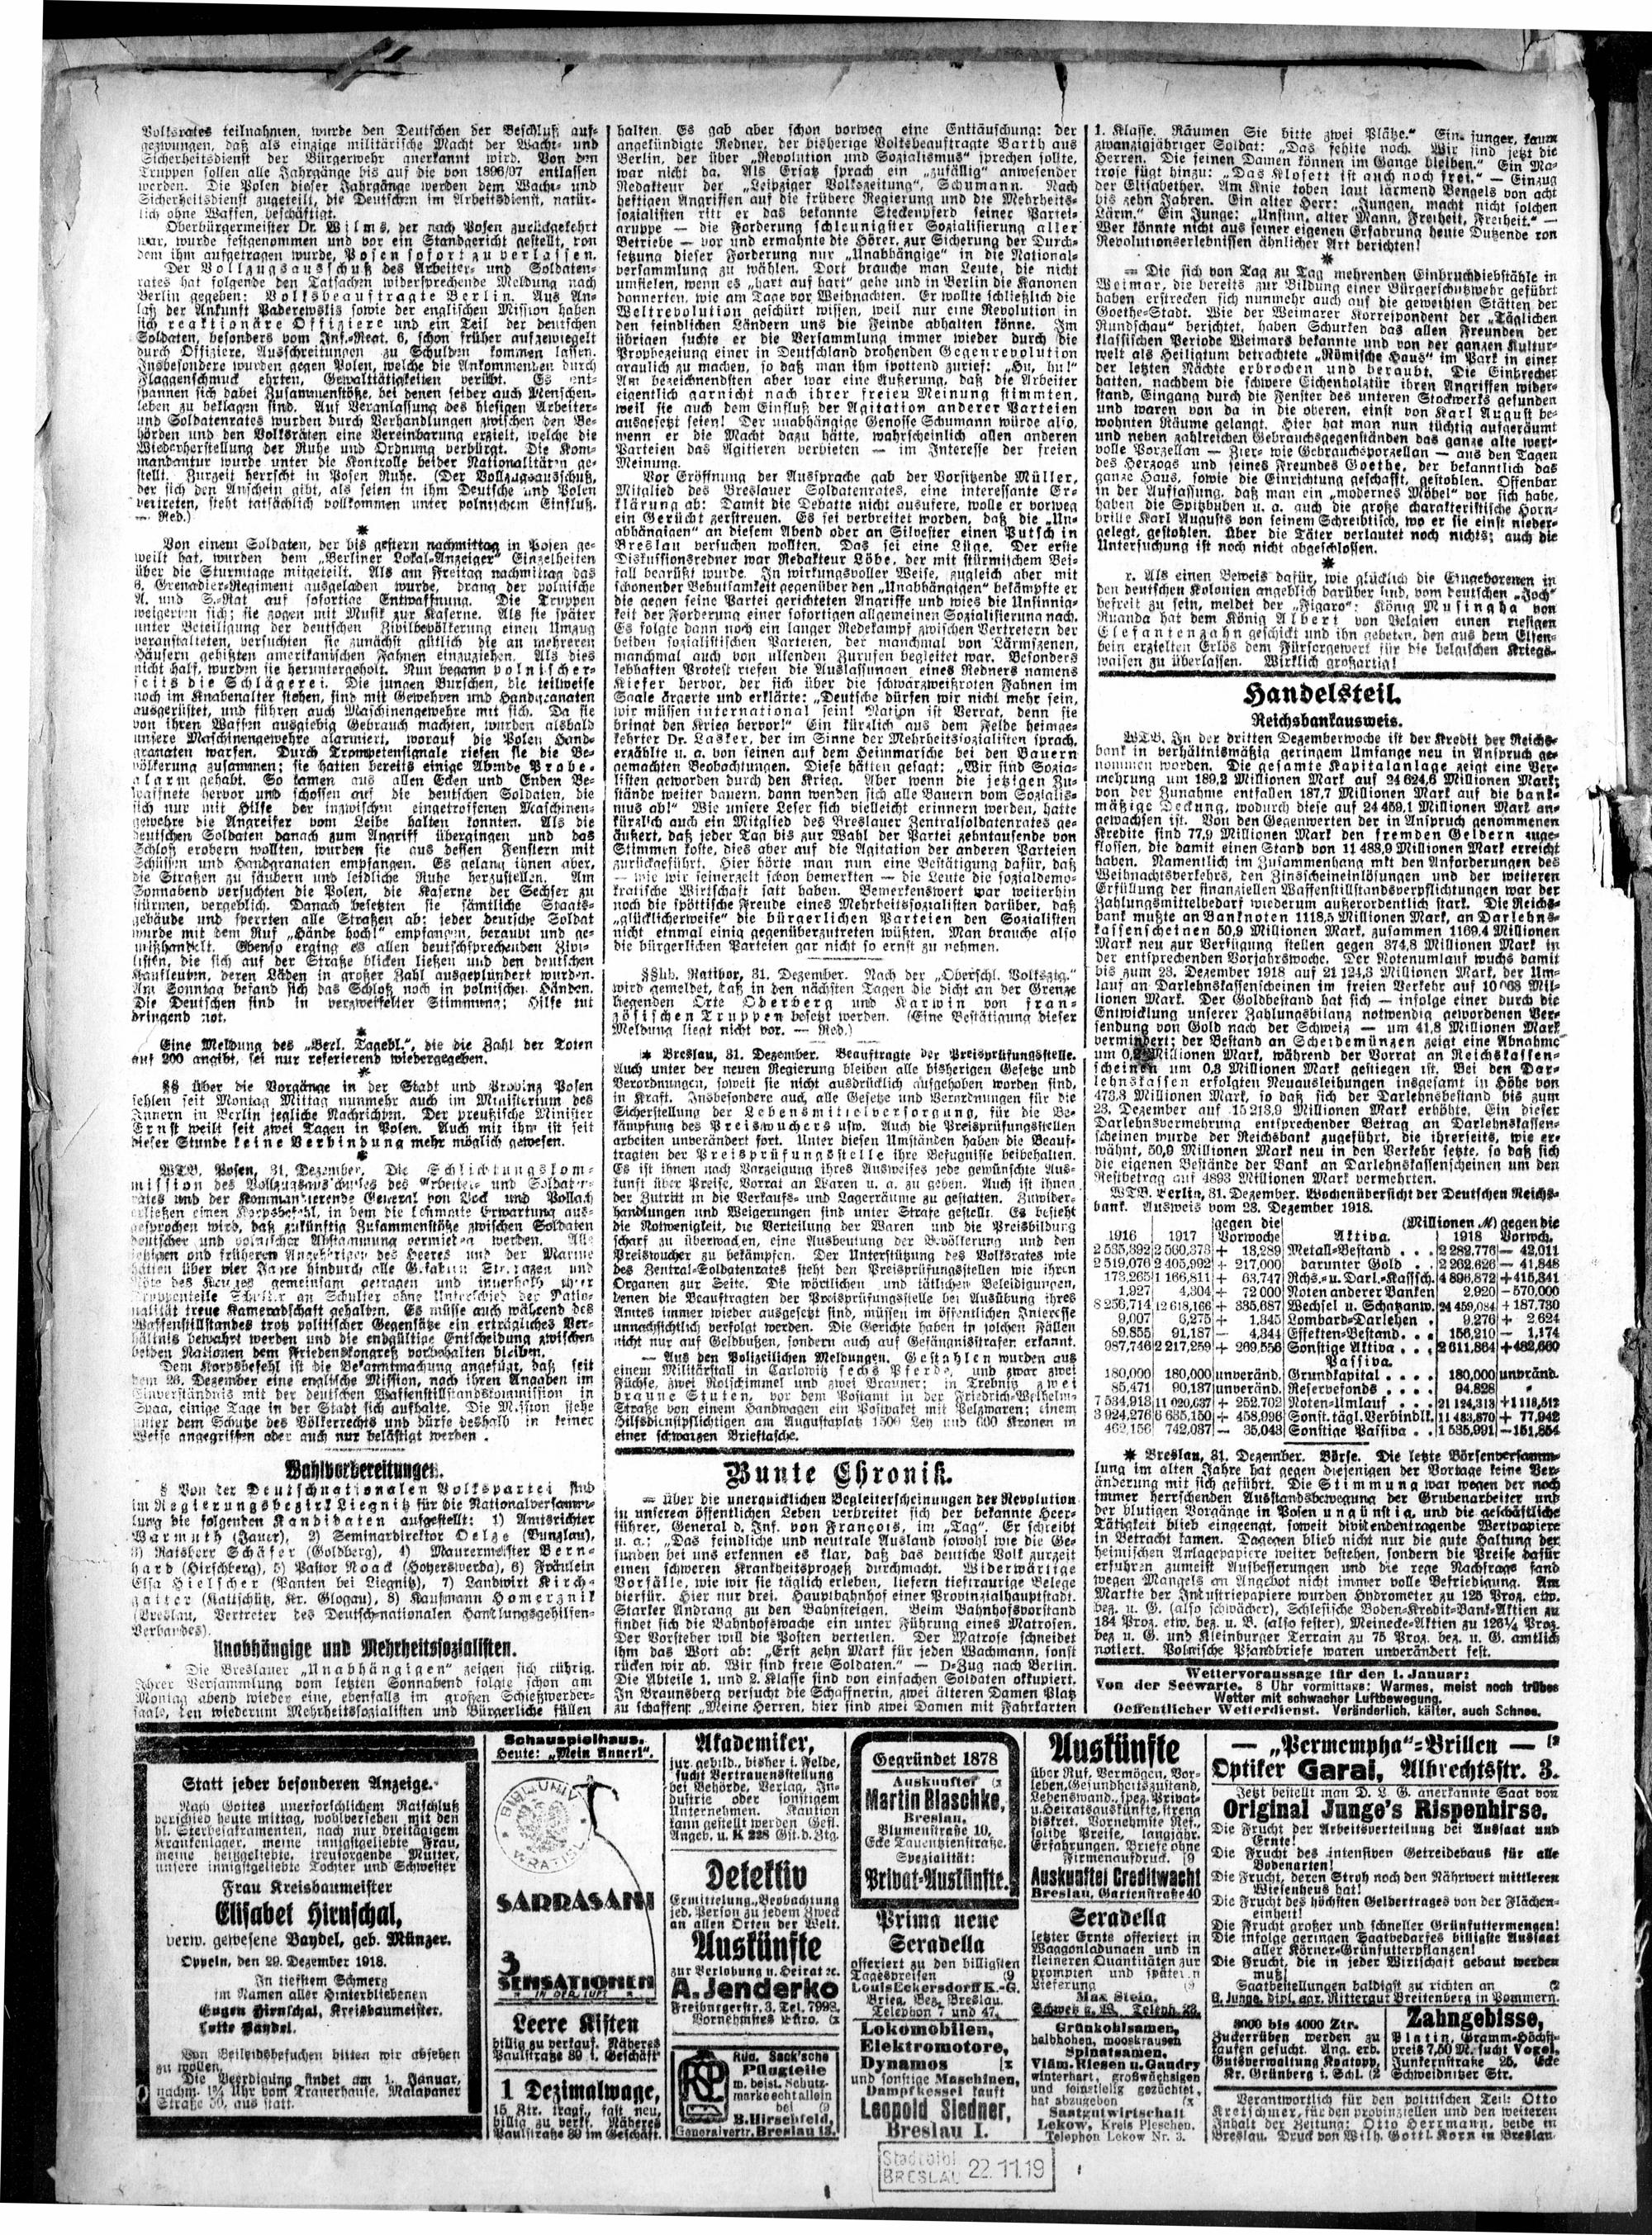 Volksrates teilnahmen, wurde den Deutschen der Beschluß auf-
gezwungen, daß als einzige militärische Macht der Wacht- und
Sicherheitsdienst der Bürgerwehr anerkannt wird. Von den
Truppen sollen alle Jahrgänge bis auf die von 1896/97 entlassen
werden. Die Polen dieser Jahrgänge werden dem Wach- und
Sicherheitsdienst zugeteilt, die Deutschen im Arbeitsdienst, natür-
lich ohne Waffen, beschäftigt.
Oberbürgermeister Dr. Wilms, der nach Posen zurückgekehrt
war, wurde festgenommen und vor ein Standgericht gestellt, von
dem ihm aufgetragen wurde, Posen sofort zu verlassen.
Der Vollzugsausschuß des Arbeiter- und Soldaten-
rates hat folgende den Tatsachen widersprechende Meldung nach
Berlin gegeben: Volksbeauftragte Berlin. Aus An-
laß der Ankunft Paderewskis sowie der englischen Mission haben
sich reaktionäre Offiziere und ein Teil der deutschen
Soldaten, besonders vom Inf.-Regt. 6, schon früher aufgewiegelt
durch Offiziere, Ausschreitungen zu Schulden kommen lassen.
Insbesondere wurden gegen Polen, welche die Ankommenden durch
Flaggenschmuck ehrten, Gewalttätigkeiten verübt. Es ent-
spannen sich dabei Zusammenstöße, bei denen leider auch Menschen-
leben zu beklagen sind. Auf Veranlassung des hiesigen Arbeiter-
und Soldatenrates wurden durch Verhandlungen zwischen den Be-
hörden und den Volksräten eine Vereinbarung erzielt, welche die
Wiederherstellung der Ruhe und Ordnung verbürgt. Die Kom-
mandantur wurde unter die Kontrolle beider Nationalitäten ge-
stellt. Zurzeit herrscht in Posen Ruhe. (Der Vollzugsausschuß,
der sich den Anschein gibt, als seien in ihm Deutsche und Polen
vertreten, steht tatsächlich vollkommen unter polnischem Einfluß.
— Red.)
*
Von einem Soldaten, der bis gestern nachmittag in Posen ge-
weilt hat, wurden dem „Berliner Lokal-Anzeiger“ Einzelheiten
über die Sturmtage mitgeteilt. Als am Freitag nachmittag das
6. Grenadier-Regiment ausgeladen wurde, drang der polnische
A. und S.-Rat auf sofortige Entwaffnung. Die Truppen
weigerten sich; sie zogen mit Musik zur Kaserne. Als sie später
unter Beteiligung der deutschen Zivilbevölkerung einen Umzug
veranstalteten versuchten sie zunächst gütlich die an mehreren
Häusern gehißten amerikanischen Fahnen einzuziehen. Als dies
nicht half, wurden sie heruntergeholt. Nun begann polnischer-
seits die Schlägerei. Die jungen Burschen, die teilweise
noch im Knabenalter stehen, sind mit Gewehren und Handgranaten
ausgerüstet, und führen auch Maschinengewehre mit sich. Da sie
von ihren Waffen ausgiebig Gebrauch machten, wurden alsbald
unsere Maschinengewehre alarmiert, worauf die Polen Hand-
granaten warfen. Durch Trompetensignale riefen sie die Be-
völkerung zusammen; sie hatten bereits einige Abende Probe-
alarm gehabt. So kamen aus allen Ecken und Enden Be-
waffnete hervor und schossen auf die deutschen Soldaten, die
sich nur mit Hilfe der inzwischen eingetroffenen Maschinen-
gewehre die Angreifer vom Leibe halten konnten. Als die
deutschen Soldaten danach zum Angriff übergingen und das
Schloß erobern wollten, wurden sie aus dessen Fenstern mit
Schüssen und Handgranaten empfangen. Es gelang ihnen aber,
die Straßen zu säubern und leidliche Ruhe herzustellen. Am
Sonnabend versuchten die Polen, die Kaserne der Sechser zu
stürmen, vergeblich. Danach besetzten sie sämtliche Staats-
gebäude und sperrten alle Straßen ab: jeder deutsche Soldat
wurde mit dem Ruf „Hände hoch!“ empfangen, beraubt und ge-
mißhandelt. Ebenso erging es allen deutschsprechenden Zivi-
listen, die sich auf der Straße blicken ließen und den deutschen
Kaufleuten, deren Läden in großer Zahl ausgeplündert wurden.
Am Sonntag befand sich das Schloß noch in polnischen Händen.
Die Deutschen sind in verzweifelter Stimmung; Hilfe tut
dringend not.
*
Eine Meldung des „Berl. Tagebl.“, die die Zahl der Toten
auf 200 angibt, sei nur referierend wiedergegeben.
*
§§ Über die Vorgänge in der Stadt und Provinz Posen
fehlen seit Montag Mittag nunmehr auch im Ministerium des
Innern in Berlin jegliche Nachrichten. Der preußische Minister
Ernst weilt seit zwei Tagen in Posen. Auch mit ihm ist seit
dieser Stunde keine Verbindung mehr möglich gewesen.
*
WTB. Posen, 31. Dezember. Die Schlichtungskom-
mission des Vollzugsausschusses des Arbeiter- und Soldaten-
rates und der Kommandierende General von Bock und Pollach
erließen einen Korpsbefehl, in dem die bestimmte Erwartung aus-
gesprochen wird, daß zukünftig Zusammenstöße zwischen Soldaten
deutscher und polnischer Abstammung vermieden werden. Alle
jetzigen und früheren Angehörigen des Heeres und der Marine
hätten über vier Jahre hindurch alle Gefahren Strapazen und
Nöte des Krieges gemeinsam getragen und innerhalb ihrer
Truppenteile Schulter an Schulter ohne Unterschied der Natio-
nalität treue Kameradschaft gehalten. Es müsse auch während des
Waffenstillstandes trotz politischer Gegensätze ein erträgliches Ver-
hältnis bewahrt werden und die endgültige Entscheidung zwischen
beiden Nationen dem Friedenskongreß vorbehalten bleiben.
Dem Korpsbefehl ist die Bekanntmachung angefügt, daß seit
dem 26. Dezember eine englische Mission, nach ihren Angaben im
Einverständnis mit der deutschen Waffenstillstandskommission in
Spaa, einige Tage in der Stadt sich aufhalte. Die Mission stehe
unter dem Schutze des Völkerrechts und dürfe deshalb in keiner
Weise angegriffen oder auch nur belästigt werden.
Wahlvorbereitungen.
§ Von der Deutschnationalen Volkspartei sind
im Regierungsbezirk Liegnitz für die Nationalversamm-
lung die folgenden Kandidaten aufgestellt: 1) Amtsrichter
Warmuth (Jauer), 2) Seminardirektor Oelze (Bunzlau),
3) Ratsherr Schäfer (Goldberg), 4) Maurermeister Bern-
hard (Hirschberg), 5) Pastor Noack (Hoyerswerda), 6) Fräulein
Elsa Hielscher (Panten bei Liegnitz), 7) Landwirt Kirch-
gatter (Kaltschütz, Kr. Glogau), 8) Kaufmann Homerznik
(Breslau, Vertreter des Deutsch-nationalen Handlungsgehilfen-
Verbandes).
Unabhängige und Mehrheitssozialisten.
* Die Breslauer „Unabhängigen“ zeigen sich rührig.
Ihrer Versammlung vom letzten Sonnabend folgte schon am
Montag abend wieder eine, ebenfalls im großen Schießwerder-
saale, den wiederum Mehrheitssozialisten und Bürgerliche füllen
halfen. Es gab aber schon vorweg eine Enttäuschung: der
angekündigte Redner, der bisherige Volksbeauftragte Barth aus
Berlin, der über „Revolution und Sozialismus“ sprechen sollte,
war nicht da. Als Ersatz sprach ein „zufällig“ anwesender
Redakteur der „Leipziger Volkszeitung“, Schumann. Nach
heftigen Angriffen auf die frühere Regierung und die Mehrheits-
sozialisten ritt er das bekannte Steckenpferd seiner Partei-
gruppe — die Forderung schleunigster Sozialisierung aller
Betriebe — vor und ermahnte die Hörer, zur Sicherung der Durch-
setzung dieser Forderung nur „Unabhängige“ in die National-
versammlung zu wählen. Dort brauche man Leute, die nicht
umfielen, wenn es „hart auf hart“ gehe und in Berlin die Kanonen
donnerten, wie am Tage vor Weihnachten. Er wollte schließlich die
Weltrevolution geschürt wissen, weil nur eine Revolution in
den feindlichen Ländern uns die Feinde abhalten könne. Im
übrigen suchte er die Versammlung immer wieder durch die
Prophezeiung einer in Deutschland drohenden Gegenrevolution
graulich zu machen, so daß man ihm spottend zurief: „Hu, hu!“
Am bezeichnendsten aber war eine Äußerung, daß die Arbeiter
eigentlich garnicht nach ihrer freien Meinung stimmten,
weil sie auch dem Einfluß der Agitation anderer Parteien
ausgesetzt seien! Der unabhängige Genosse Schumann würde also,
wenn er die Macht dazu hätte, wahrscheinlich allen anderen
Parteien das Agitieren verbieten — im Interesse der freien
Meinung.
Vor Eröffnung der Aussprache gab der Vorsitzende Müller,
Mitglied des Breslauer Soldatenrates, eine interessante Er-
klärung ab: Damit die Debatte nicht ausufere, wolle er vorweg
ein Gerücht zerstreuen. Es sei verbreitet worden, daß die „Un-
abhängigen“ an diesem Abend oder an Silvester einen Putsch in
Breslau versuchen wollten. Das sei eine Lüge. Der erste
Diskussionsredner war Redakteur Löbe, der mit stürmischem Bei-
fall begrüßt wurde. In wirkungsvoller Weise, zugleich aber mit
schonender Behutsamkeit gegenüber den „Unabhängigen“ bekämpfte er
die gegen seine Partei gerichteten Angriffe und wies die Unsinnig-
keit der Forderung einer sofortigen allgemeinen Sozialisierung nach.
Es folgte dann noch ein langer Redekampf zwischen Vertretern der
beiden sozialistischen Parteien, der manchmal von Lärmszenen,
manchmal auch von ulkenden Zurufen begleitet war. Besonders
lebhaften Protest riefen die Auslassungen eines Redners namens
Kiefer hervor, der sich über die schwarzweißroten Fahnen im
Saale ärgerte und erklärte: „Deutsche dürfen wir nicht mehr sein,
wir müssen international sein! Nation ist Verrat, denn sie
bringt den Krieg hervor!“ Ein kürzlich aus dem Felde heimge-
kehrter Dr. Lasker, der im Sinne der Mehrheitssozialisten sprach,
erzählte u. a. von seinen auf dem Heimmarsche bei den Bauern
gemachten Beobachtungen. Diese hätten gesagt: „Wir sind Sozia-
listen geworden durch den Krieg. Aber wenn die jetzigen Zu-
stände weiter dauern, dann wenden sich alle Bauern vom Sozialis-
mus ab!“ Wie unsere Leser sich vielleicht erinnern werden, hatte
kürzlich auch ein Mitglied des Breslauer Zentralsoldatenrates ge-
äußert, daß jeder Tag bis zur Wahl der Partei zehntausende von
Stimmen koste, dies aber auf die Agitation der anderen Parteien
zurückgeführt. Hier hörte man nun eine Bestätigung dafür, daß
— wie wir seinerzeit schon bemerkten — die Leute die sozialdemo-
kratische Wirtschaft satt haben. Bemerkenswert war weiterhin
noch die spöttische Freude eines Mehrheitssozialisten darüber, daß
„glücklicherweise“ die bürgerlichen Parteien den Sozialisten
nicht einmal einig gegenüberzutreten wüßten. Man brauche also
die bürgerlichen Parteien gar nicht so ernst zu nehmen.
§§hb. Ratibor, 31. Dezember. Nach der „Oberschl. Volksztg.“
wird gemeldet, daß in den nächsten Tagen die dicht an der Grenze
liegenden Orte Oderberg und Karwin von fran-
zösischen Truppen besetzt werden. (Eine Bestätigung dieser
Meldung liegt nicht vor. — Red.)
* Breslau, 31. Dezember. Beauftragte der Preisprüfungsstelle.
Auch unter der neuen Regierung bleiben alle bisherigen Gesetze und
Verordnungen, soweit sie nicht ausdrücklich aufgehoben worden sind,
in Kraft. Insbesondere auch alle Gesetze und Verordnungen für die
Sicherstellung der Lebensmittelversorgung, für die Be-
kämpfung des Preiswuchers usw. Auch die Preisprüfungsstellen
arbeiten unverändert fort. Unter diesen Umständen haben die Beauf-
tragten der Preisprüfungsstelle ihre Befugnisse beibehalten.
Es ist ihnen nach Vorzeigung ihres Ausweises jede gewünschte Aus-
kunft über Preise, Vorrat an Waren u. a. zu geben. Auch ist ihnen
der Zutritt in die Verkaufs- und Lagerräume zu gestatten. Zuwider-
handlungen und Weigerungen sind unter Strafe gestellt. Es besteht
die Notwenigkeit, die Verteilung der Waren und die Preisbildung
scharf zu überwachen, eine Ausbeutung der Bevölkerung und den
Preiswucher zu bekämpfen. Der Unterstützung des Volksrates wie
des Zentral-Soldatenrates steht den Preisprüfungsstellen wie ihren
Organen zur Seite. Die wörtlichen und tätlichen Beleidigungen,
denen die Beauftragten der Preisprüfungsstelle bei Ausübung ihres
Amtes immer wieder ausgesetzt sind, müssen im öffentlichen Interesse
unnachsichtlich verfolgt werden. Die Gerichte haben in solchen Fällen
nicht nur auf Geldbußen, sondern auch auf Gefängnisstrafen erkannt.
— Aus den Polizeilichen Meldungen. Gestohlen wurden aus
einem Militärstall in Carlowitz sechs Pferde, und zwar zwei
Füchse, zwei Rotschimmel und zwei Brauner; in Trebnitz zwei
braune Stuten, vor dem Postamt in der Friedrich-Wilhelm-
Straße von einem Handwagen ein Postpaket mit Pelzwaren; einem
Hilfsdienstpflichtigen am Augustaplatz 1500 Ley und 600 Kronen in
einer schwarzen Brieftasche.
Bunte Chronik.
= Über die unerquicklichen Begleiterscheinungen der Revolution
in unserem öffentlichen Leben verbreitet sich der bekannte Heer-
führer, General d. Inf. von François, im „Tag“. Er schreibt
u. a.: „Das feindliche und neutrale Ausland sowohl wie die Ge-
sunden bei uns erkennen es klar, daß das deutsche Volk zurzeit
einen schweren Krankheitsprozeß durchmacht. Widerwärtige
Vorfälle, wie wir sie täglich erleben, liefern tieftraurige Belege
hierfür. Hier nur drei. Hauptbahnhof einer Provinzialhauptstadt.
Starker Andrang zu den Bahnsteigen. Beim Bahnhofsvorstand
findet sich die Bahnhofswache ein unter Führung eines Matrosen.
Der Vorsteher will die Posten verteilen. Der Matrose schneidet
ihm das Wort ab: „Erst zehn Mark für jeden Wachmann, sonst
rücken wir ab. Wir sind freie Soldaten.“ — D-Zug nach Berlin.
Die Abteile 1. und 2. Klasse sind von einfachen Soldaten okkupiert.
In Braunsberg versucht die Schaffnerin, zwei älteren Damen Platz
zu schaffen: „Meine Herren, hier sind zwei Damen mit Fahrkarten
1. Klasse. Räumen Sie bitte zwei Plätze.“ Ein junger, kaum
zwanzigjähriger Soldat: „Das fehlte noch. Wir sind jetzt die
Herren. Die feinen Damen können im Gange bleiben.“ Ein Ma-
trose fügt hinzu: „Das Klosett ist auch noch frei.“ — Einzug
der Elisabether. Am Knie toben laut lärmend Bengels von acht
bis zehn Jahren. Ein alter Herr: „Jungen, macht nicht solchen
Lärm.“ Ein Junge: „Unsinn, alter Mann, Freiheit, Freiheit.“ —
Wer könnte nicht aus seiner eigenen Erfahrung heute Dutzende von
Revolutionserlebnissen ähnlicher Art berichten!
*
= Die sich von Tag zu Tag mehrenden Einbruchdiebstähle in
Weimar, die bereits zur Bildung einer Bürgerschutzwehr geführt
haben erstrecken sich nunmehr auch auf die geweihten Stätten der
Goethe-Stadt. Wie der Weimarer Korrespondent der „Täglichen
Rundschau“ berichtet, haben Schurken das allen Freunden der
klassischen Periode Weimars bekannte und von der ganzen Kultur-
welt als Heiligtum betrachtete „Römische Haus“ im Park in einer
der letzten Nächte erbrochen und beraubt. Die Einbrecher
hatten, nachdem die schwere Eichenholztür ihren Angriffen wider-
stand, Eingang durch die Fenster des unteren Stockwerks gefunden
und waren von da in die oberen, einst von Karl August be-
wohnten Räume gelangt. Hier hat man nun tüchtig aufgeräumt
und neben zahlreichen Gebrauchsgegenständen das ganze alte wert-
volle Porzellan — Zier- wie Gebrauchsporzellan — aus den Tagen
des Herzogs und seines Freundes Goethe, der bekanntlich das
ganze Haus, sowie die Einrichtung geschafft, gestohlen. Offenbar
in der Auffassung, daß man ein „modernes Möbel“ vor sich habe,
haben die Spitzbuben u. a. auch die große charakteristische Horn-
brille Karl Augusts von seinem Schreibtisch, wo er sie einst nieder-
gelegt, gestohlen. Über die Täter verlautet noch nichts; auch die
Untersuchung ist noch nicht abgeschlossen.
*
r. Als einen Beweis dafür, wie glücklich die Eingeborenen in
den deutschen Kolonien angeblich darüber sind, vom deutschen „Joch“
befreit zu sein, meldet der „Figaro“: König Musingha von
Ruanda hat dem König Albert von Belgien einen riesigen
Elefantenzahn geschickt und ihn gebeten, den aus dem Elfen-
bein erzielten Erlös dem Fürsorgewerk für die belgischen Kriegs-
waisen zu überlassen. Wirklich großartig!
Handelsteil.
Reichsbankausweis.
WTB. In der dritten Dezemberwoche ist der Kredit der Reichs-
bank in verhältnismäßig geringem Umfange neu in Anspruch ge-
nommen worden. Die gesamte Kapitalanlage zeigt eine Ver-
mehrung um 189,2 Millionen Mark auf 24 624,6 Millionen Mark;
von der Zunahme entfallen 187,7 Millionen Mark auf die bank-
mäßige Deckung, wodurch diese auf 24 459,1 Millionen Mark an-
gewachsen ist. Von den Gegenwerten der in Anspruch genommenen
Kredite sind 77,9 Millionen Mark den fremden Geldern zuge-
flossen, die damit einen Stand von 11 483,9 Millionen Mark erreicht
haben. Namentlich im Zusammenhang mit den Anforderungen des
Weihnachtsverkehrs, den Zinsscheineinlösungen und der weiteren
Erfüllung der finanziellen Waffenstillstandsverpflichtungen war der
Zahlungsmittelbedarf wiederum außerordentlich stark. Die Reichs-
bank mußte an Banknoten 1118,5 Millionen Mark, an Darlehns-
kassenscheinen 50,9 Millionen Mark, zusammen 1169,4 Millionen
Mark neu zur Verfügung stellen gegen 374,8 Millionen Mark in
der entsprechenden Vorjahrswoche. Der Notenumlauf wuchs damit
bis zum 23. Dezember 1918 auf 21 124,3 Millionen Mark, der Um-
lauf an Darlehnskassenscheinen im freien Verkehr auf 10 068 Mil-
lionen Mark. Der Goldbestand hat sich — infolge einer durch die
Entwicklung unserer Zahlungsbilanz notwendig gewordenen Ver-
sendung von Gold nach der Schweiz — um 41,8 Millionen Mark
vermindert; der Bestand an Scheidemünzen zeigt eine Abnahme
um Millionen Mark, während der Vorrat an Reichskassen-
scheinen um 0,3 Millionen Mark gestiegen ist. Bei den Dar-
lehnskassen erfolgten Neuausleihungen insgesamt in Höhe von
473,3 Millionen Mark, so daß sich der Darlehnsbestand bis zum
23. Dezember auf 15 213,9 Millionen Mark erhöhte. Ein dieser
Darlehnsvermehrung entsprechender Betrag an Darlehnskassen-
scheinen wurde der Reichsbank zugeführt, die ihrerseits, wie er-
wähnt, 50,9 Millionen Mark neu in den Verkehr setzte, so daß sich
die eigenen Bestände der Bank an Darlehnskassenscheinen um den
Restbetrag auf 4893 Millionen Mark vermehrten.
WTB. Berlin, 31. Dezember. Wochenübersicht der Deutschen Reichs-
bank. Ausweis vom 23. Dezember 1918.
gegen die (Millionen M) gegen die
1916 1917 Vorwoche Aktiva. 1918 Vorwch.
2 535,392 2 560,373 + 13,289 Metall-Bestand . . . 2 282,776 — 42,011
2 519,076 2 405,992 + 217,000 darunter Gold . . 2 262,626 — 41,848
173,265 1 166,811 + 63,747 Rchs.- u. Darl.-Kassich. 4 896,872 + 415,341
1,927 4,304 + 72 000 Noten anderer Banken 2,920 — 570,000
8 256,714 12 618,166 + 335,687 Wechsel u. Schatzanw. 24 459,084 + 187,730
9,007 6,275 + 1,345 Lombard-Darlehen . 9,276 + 2,624
89,855 91,187 — 4,344 Effekten-Bestand . . . 156,210 — 1,174
987,746 2 217,259 + 269,556 Sonstige Aktiva . . . 2 611,864 + 482,660
Passiva.
180,000 180,000 unveränd. Grundkapital . . . . 180,000 unvränd.
85,471 90,137 unveränd. Reservefonds . . . . 94,828 „
7 534,913 11 020,637 + 252,702 Noten-Umlauf . . . 21 124,313 + 1 118,512
3 924,276 6 635,150 + 458,996 Sonst. tägl. Verbindlk. 11 483,870 + 77,942
462,156 742,037 — 35,043 Sonstige Passiva . . 1 535,991 — 151,854
* Breslau, 31. Dezember. Börse. Die letzte Börsenversamm-
lung im alten Jahre hat gegen diejenigen der Vortage keine Ver-
änderung mit sich geführt. Die Stimmung war wegen der noch
immer herrschenden Ausstandsbewegung der Grubenarbeiter und
der blutigen Vorgänge in Posen ungünstig, und die geschäftliche
Tätigkeit blieb eingeengt, soweit dividendentragende Wertpapiere
in Betracht kamen. Dagegen blieb nicht nur die gute Haltung der
heimischen Anlagepapiere weiter bestehen, sondern die Preise dafür
erfuhren zumeist Aufbesserungen und die rege Nachfrage fand
wegen Mangels an Angebot nicht immer volle Befriedigung. Am
Markte der Industriepapiere wurden Hydrometer zu 125 Proz. etw.
bez. u. G. (also schwächer), Schlesische Boden-Kredit-Bank-Aktien zu
134 Proz. etw. bez. u. B. (also fester), Meinecke-Aktien zu 126¼ Proz.
bez. u. G. und Kleinburger Terrain zu 75 Proz. bez. u. G. amtlich
notiert. Polnische Pfandbriefe waren unverändert fest.
Wettervoraussage für den 1. Januar:
Von der Seewarte. 8 Uhr vormittags: Warmes, meist noch trübes
Wetter mit schwacher Luftbewegung.
Oeffentlicher Wetterdienst. Veränderlich, kälter, auch Schnee.
Statt jeder besonderen Anzeige.
Nach Gottes unerforschlichem Ratschluß
verschied heute mittag, wohlversehen mit den
hl. Sterbesakramenten, nach nur dreitägigem
Krankenlager, meine innigstgeliebte Frau,
meine heißgeliebte, treusorgende Mutter,
unsere innigstgeliebte Tochter und Schwester
Frau Kreisbaumeister
Elisabet Hirnschal,
verw. gewesene Baydel, geb. Münzer.
Oppeln, den 29. Dezember 1918.
In tiefstem Schmerz
im Namen aller Hinterbliebenen
Eugen Hirnschal, Kreisbaumeister.
Lotte Baydel.
Von Beileidsbesuchen bitten wir absehen
zu wollen.
Die Beerdigung findet am 1. Januar,
nachm. 1¾ Uhr vom Trauerhause, Malapaner
Straße 30, aus statt.
Schauspielhaus.
Heute: „Mein Annerl“.
BIBL. UNIV.
WRATISL.
SARRASANI
3
SENSATIONEN
IN DER LUFT
Leere Kisten
billig zu verkauf. Näheres
Paulstraße 39 i. Geschäft
1 Dezimalwage,
15 Ztr. tragf., fast neu,
billig zu verkf. Näheres
Paulstraße 39 im Geschäft.
Akademiker,
jur. gebild., bisher i. Felde,
sucht Vertrauensstellung
bei Behörde, Verlag, In-
dustrie oder sonstigem
Unternehmen. Kaution
kann gestellt werden Gefl.
Angeb. u. K 228 Git. d. Ztg.
Detektiv
Ermittelung., Beobachtung
jed. Person zu jedem Zweck
an allen Orten der Welt.
Auskünfte
zur Verlobung u. Heirat ꝛc.
A. Jenderko
Freiburgerstr. 3. Tel. 7998.
Vornehmstes Büro. (x
Rud. Sack'sche
Pflugteile
m. beist. Schutz-
marke echt allein
bei (9
B. Hirschfeld,
Generalvertr. Breslau 13.
Gegründet 1878
Auskunftei (x
Martin Blaschke,
Breslau,
Blumenstraße 10,
Ecke Tauentzienstraße.
Spezialität:
Privat-Auskünfte.
Prima neue
Seradella
offeriert zu den billigsten
Tagespreisen (9
Louis Eckersdorff K.-G.
Brieg, Bez. Breslau.
Telephon 7 und 47.
Lokomobilen,
Elektromotore,
Dynamos (x
und sonstige Maschinen,
Dampfkessel kauft
Leopold Siedner,
Breslau I.
Auskünfte
über Ruf, Vermögen, Vor-
leben, Gesundheitszustand,
Lebenswand., spez. Privat-
u. Heiratsauskünfte, streng
diskret. Vornehmste Ref.,
solide Preise, langjähr.
Erfahrungen. Briefe ohne
Firmenaufdruck. (9
Auskunftei Creditwacht
Breslau, Gartenstraße 40
Seradella
letzter Ernte offeriert in
Waggonladungen und in
kleineren Quantitäten zur
prompten und späteren
Lieferung (9
Max Stein,
Schweg a. 13. Teleph. 23.
Grünkohlsamen,
halbhohen, mooskrausen
Spinatsamen,
Vläm. Riesen u. Gaudry
winterhart, großwüchsigen
und feinstielig gezüchtet,
hat abzugeben (x
Saatgutwirtschaft
Lekow, Kreis Pleschen.
Telephon Lekow Nr. 3.
— „Permempha“-Brillen — (2
Optiker Garai, Albrechtsstr. 3.
Jetzt bestellt man D. L. G. anerkannte Saat von
Original Junge's Rispenhirse.
Die Frucht der Arbeitsverteilung bei Aussaat und
Ernte!
Die Frucht des intensiven Getreidebaus für alle
Bodenarten!
Die Frucht, deren Stroh noch den Nährwert mittleren
Wiesenheus hat!
Die Frucht des höchsten Geldertrages von der Flächen-
einheit!
Die Frucht großer und schneller Grünfuttermengen!
Die infolge geringen Saatbedarfes billigste Aussaat
aller Körner-Grünfutterpflanzen!
Die Frucht, die in jeder Wirtschaft gebaut werden
muß!
Saatbestellungen baldigst zu richten an (2
G. Junge, dipl. agr. Rittergut Breitenberg in Pommern.
3000 bis 4000 Ztr.
Zuckerrüben werden zu
kaufen gesucht. Ang. erb.
Gutsverwaltung Kontopp,
Kr. Grünberg i. Schl. (2
Zahngebisse,
Platin, Gramm-Höchst-
preis 7,50 M. sucht Vogel,
Junkernstraße 25, Ecke
Schweidnitzer Str.
Verantwortlich für den politischen Teil: Otto
Kretschmer, für den provinziellen und den weiteren
Inhalt der Zeitung: Otto Herrmann, beide in
Breslau. Druck von Wilh. Gottl. Korn in Breslau
Stadtbibl.
BRESLAU 22.11.19